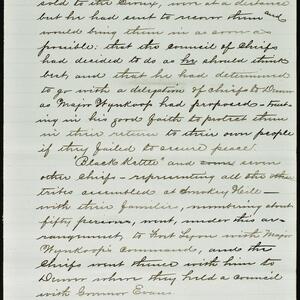 sold to the Sioux, were at a distance
but he had sent to recover them and
would bring them in as soon as
possible. that the council of Chiefs
had decided to do as he should think
best, and that he had determined
to go with a delegation of Chiefs to Denver
as Major Wynkoop had proposed - trust-
ing in his good faith to protect them
in their return to their own people
if they failed to secure peace.
"Black Kettle" and seven
other Chiefs - representing all the other
tribes assembled at Smokey Hill -
with their families, numbering about
fifty persons, went, under this ar-
rangement, to Fort Lyon with Major
Wynkoop's command, and the
Chiefs went thence with him to
Denver where they held a council
with Governor Evans.